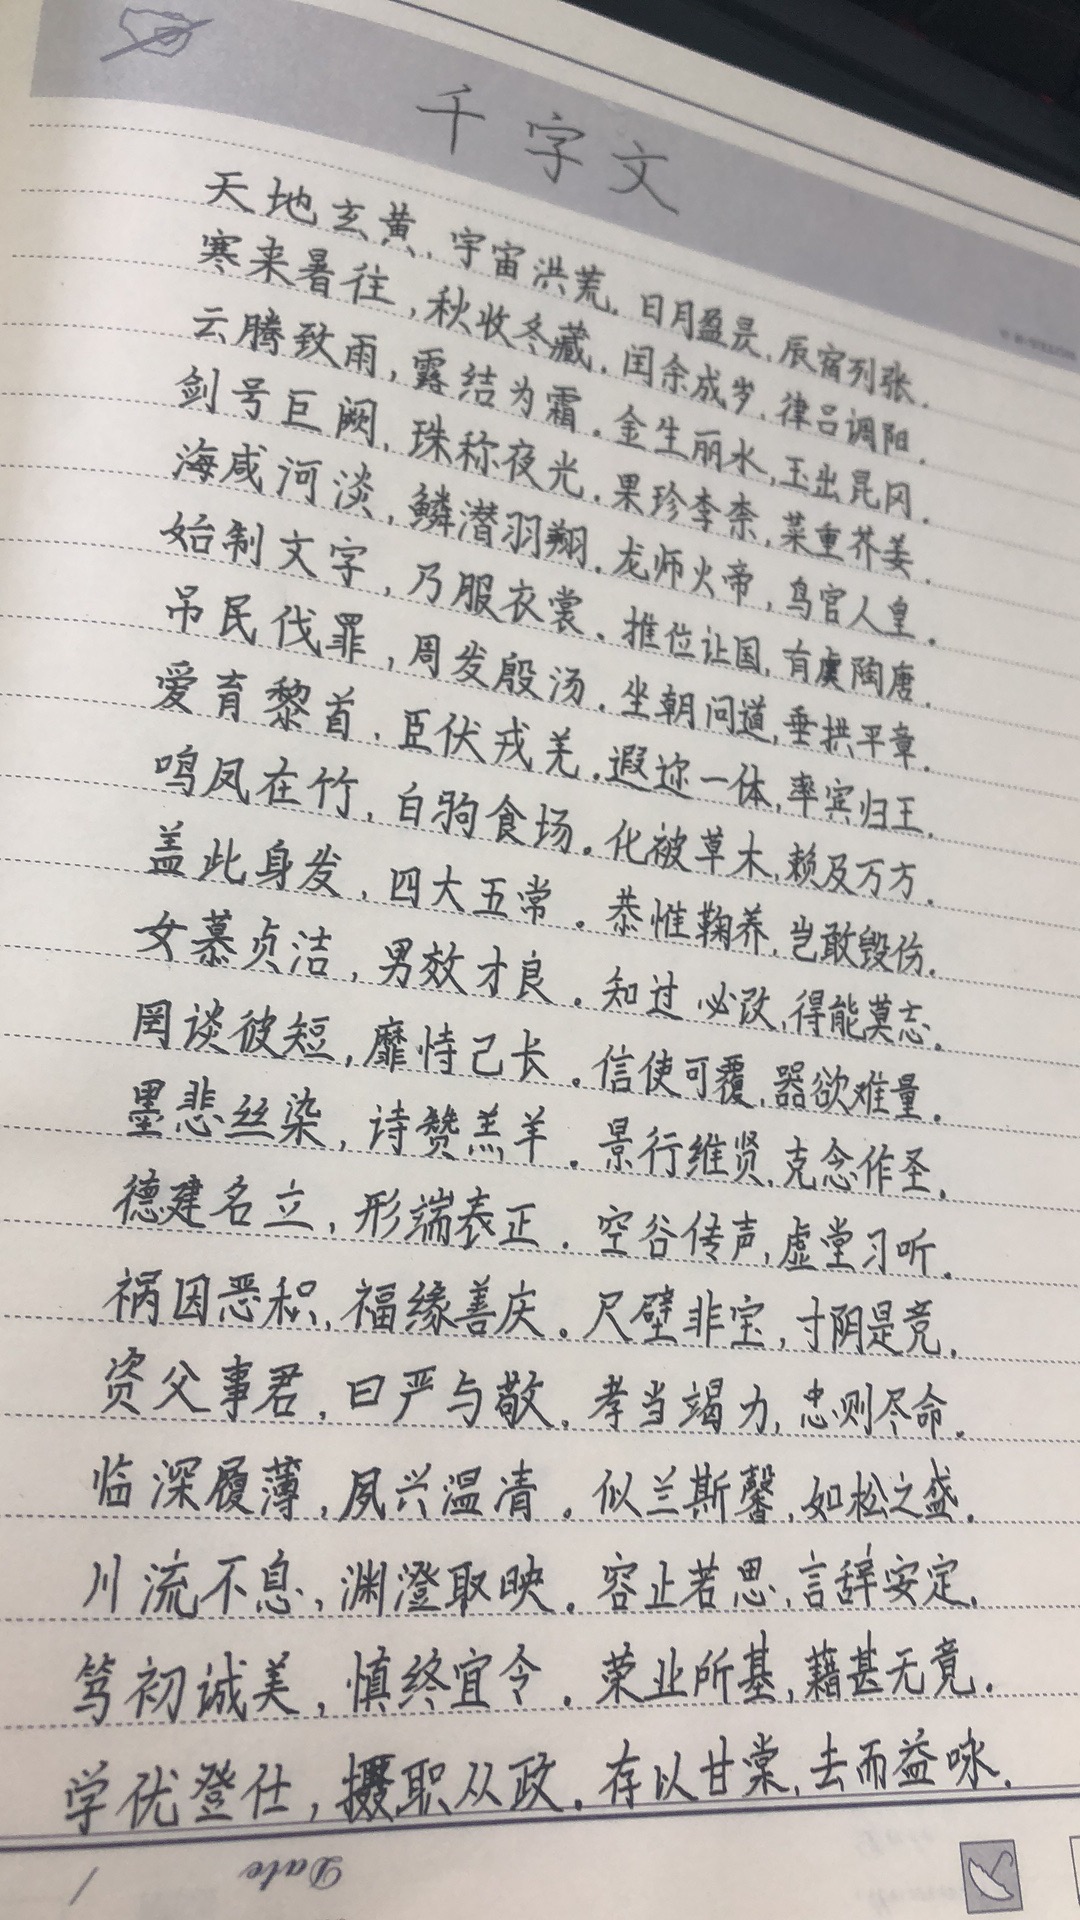 千字文
天地玄黄,宇宙洪荒.日月盈昃,辰宿列张.
寒来暑往,秋收冬藏.闰余成岁,律吕调阳.
云腾致雨,露结为霜.金生丽水,玉出昆冈.
剑号巨阙,珠称夜光.果珍李柰,菜重芥姜.
海咸河淡,鳞潜羽翔.龙师火帝,鸟官人皇.
始制文字,乃服衣裳.推位让国,有虞陶唐.
吊民伐罪,周发殷汤.坐朝问道,垂拱平章.
爱育黎首,臣伏戎羌.遐迩一体,率宾归王.
鸣凤在竹,白驹食场.化被草木,赖及万方.
盖此身发,四大五常.恭惟鞠养,岂敢毁伤.
女慕贞洁,男效才良.知过必改,得能莫忘.
罔谈彼短,靡恃己长.信使可覆,器欲难量.
墨悲丝染,诗赞羔羊.景行维贤,克念作圣.
德建名立,形端表正.空谷传声,虚堂习听.
祸因恶积,福缘善庆.尺璧非宝,寸阴是竞.
资父事君,曰严与敬.孝当竭力,忠则尽命.
临深履薄,夙兴温清.似兰斯馨,如松之盛.
川流不息,渊澄取映.容止若思,言辞安定.
笃初诚美,慎终宜令.荣业所基,藉甚无竟.
学优登仕,摄职从政.存以甘棠,去而益咏.
Date /